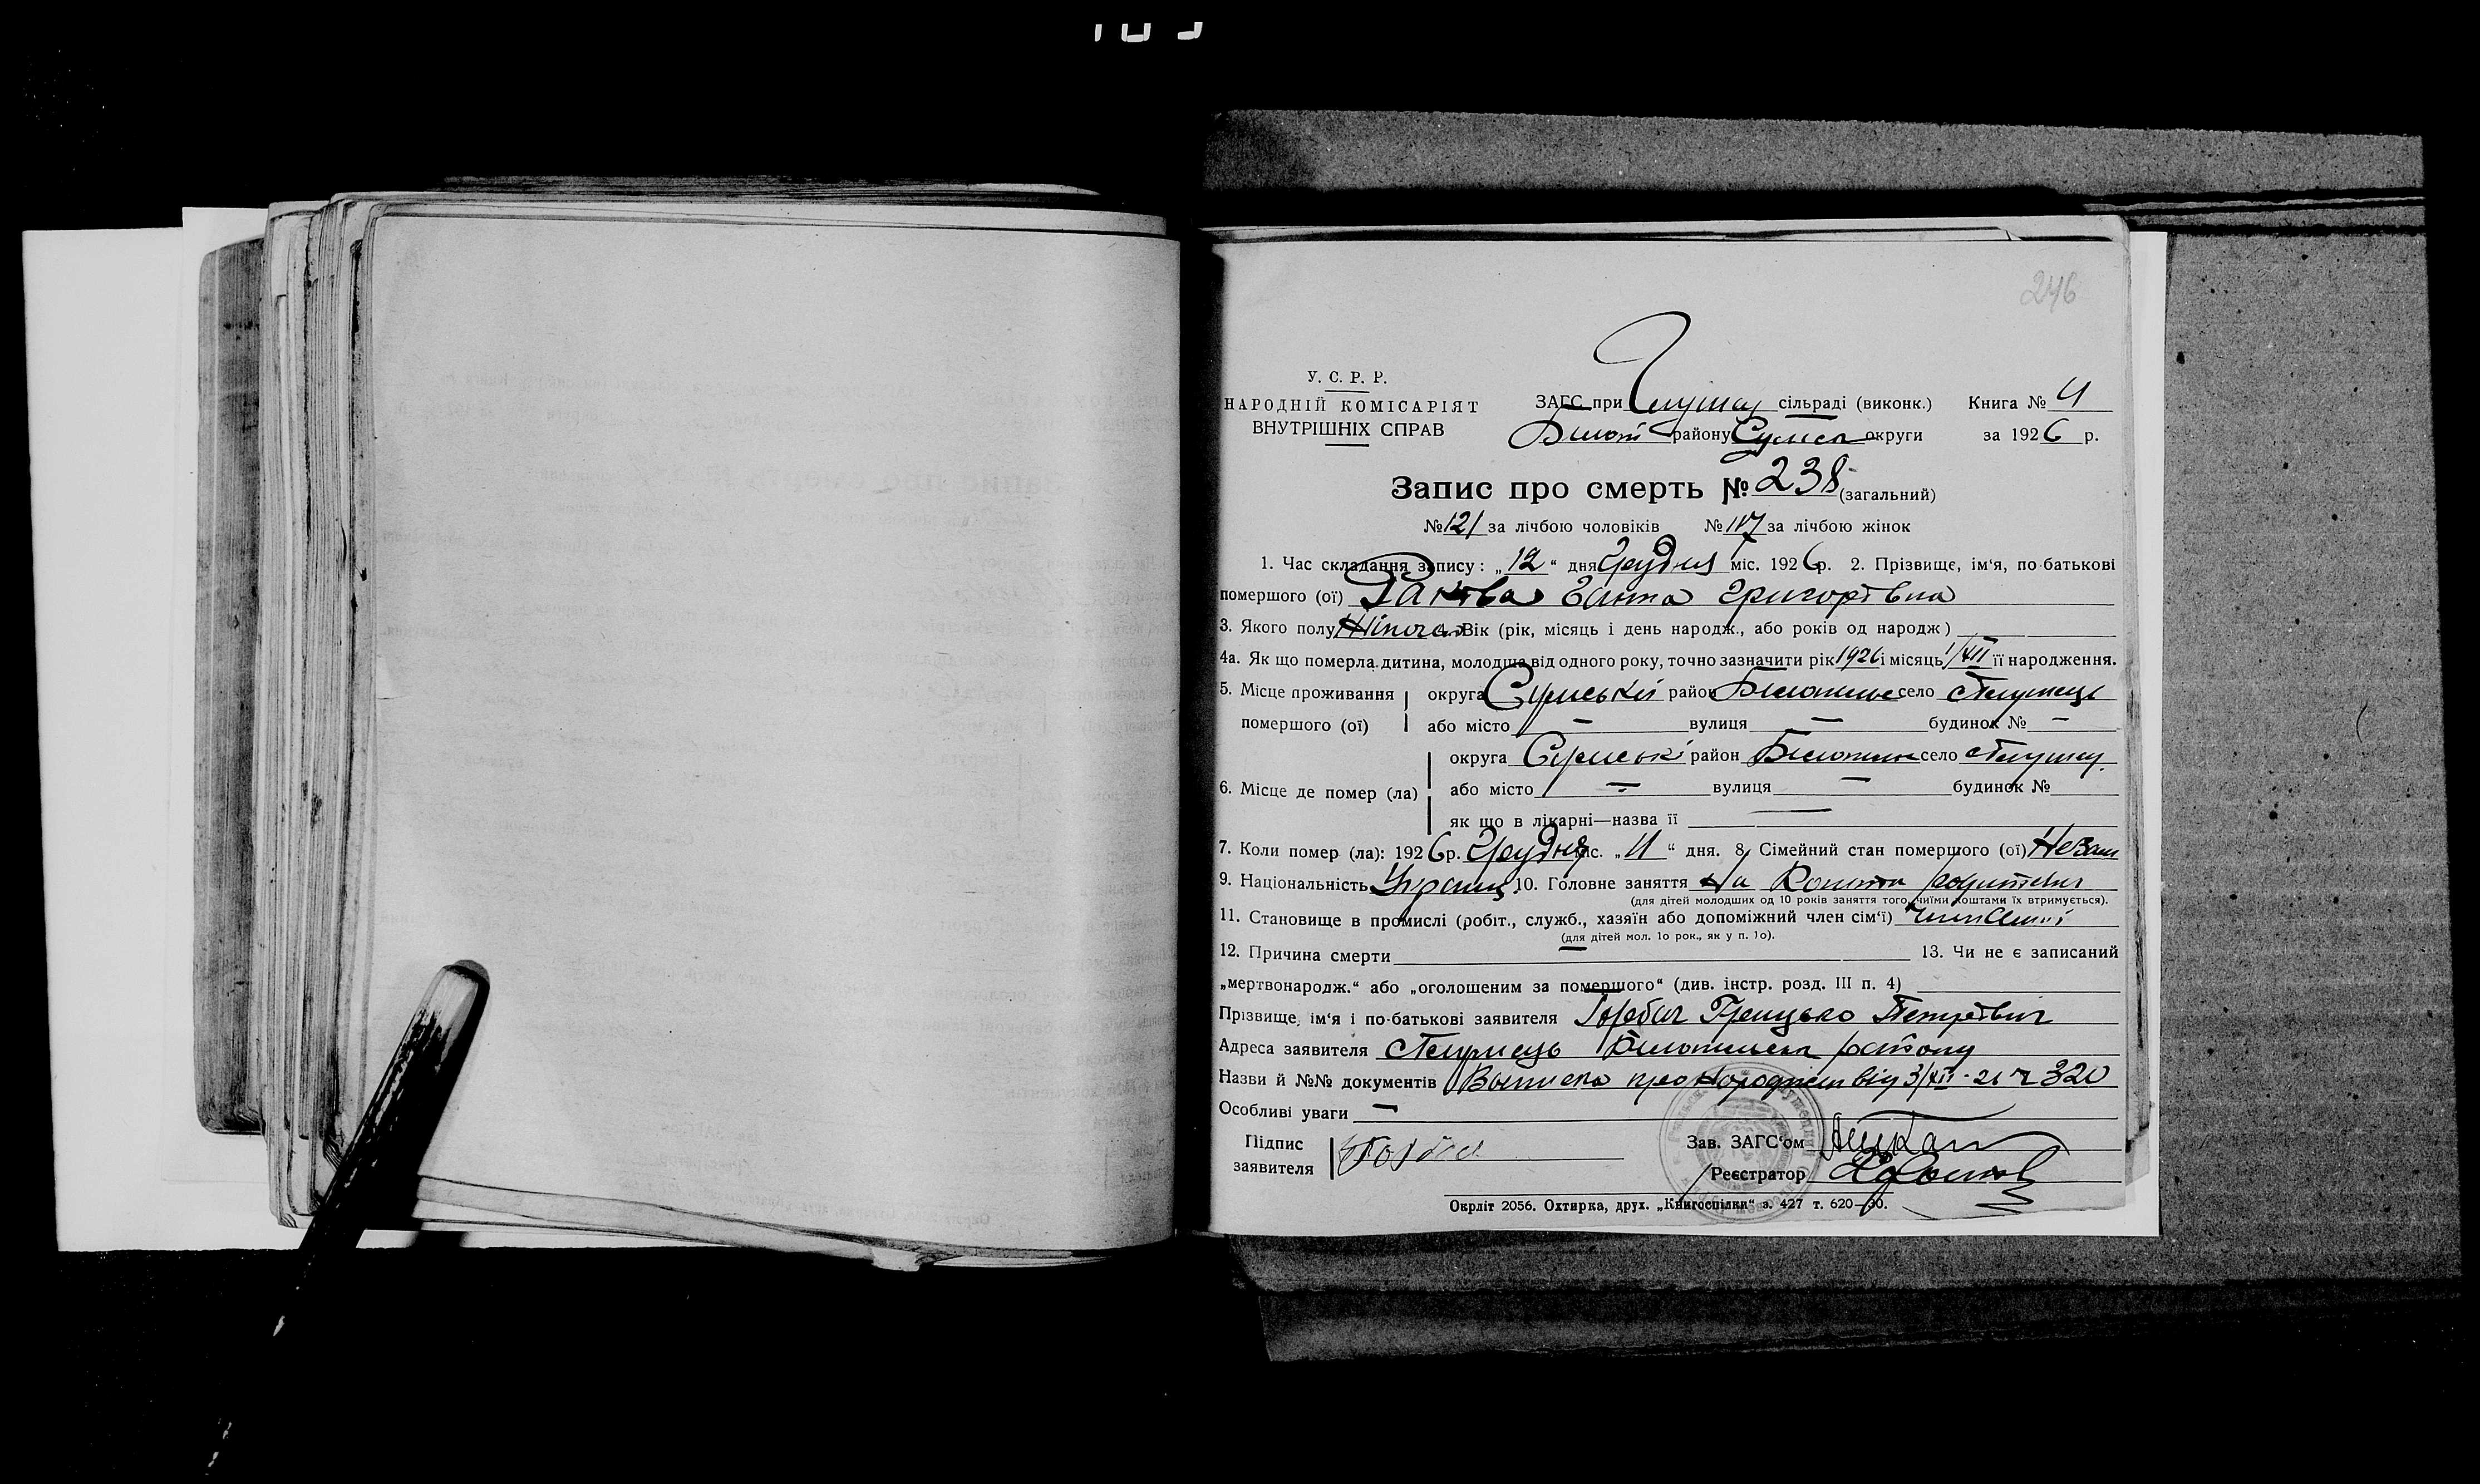 246
У. С. Р. Р.
НАРОДНІЙ КОМІСАРІЯТ
ВНУТРІШНІХ СПРАВ
ЗАГС при сільраді (виконк.) Книга №
Білоп району Сумск округи за 1926 р.
Запис про смерть № 238 (загальний)
№ 121 за лічбою чоловіків № 117 за лічбою жінок
1. Час складання запису: „12“ дня Грудня міс. 1926 р. 2. Прізвище, ім‘я, по-батькові
помершого (ої) Ганна Григорівна
3. Якого полу Жіноча 4. Вік (рік, місяць і день народж., або років од народж)
4а. Як що померла дитина, молодша від одного року, точно зазначити рік 1926 і місяць 1/XII її народження.
5. Місце проживання округа Сумській район село
помершого (ої) або місто — вулиця — будинок № —
округа Сумські район село
6. Місце де помер (ла) або місто — вулиця — будинок №
як що в лікарні—назва її —
7. Коли помер (ла): 1926 р. Грудня міс. „11“ дня. 8. Сімейний стан помершого (ої)
9. Національність Українц 10. Головне заняття На кошти родителів
(для дітей молодших од 10 років заняття того, чиїми коштами їх втримується).
11. Становище в промислі (робіт., служб., хазяїн або допоміжний член сім‘ї) член сімї
(для дітей мол. 1о рок., як у п. 1о).
12. Причина смерти — 13. Чи не є записаний
„мертвонародж.“ або „оголошеним за помершого“ (див. інстр. розд. III п. 4) —
Прізвище, ім‘я і по-батькові заявителя Горбач Грицько
Адреса заявителя району
Назви й №№ документів Выписка про Народжен від 3/XII-26 г 320
Особливі уваги —
Підпис
заявителя Горбач
Зав. ЗАГС‘ом
Реєстратор
Окрліт 2056. Охтирка, друх. „Книгоспілки“ з. 427 т. 620—30.